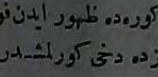 كوره‌ده ظهور ايدن فو
زده دخى كورلمشدر